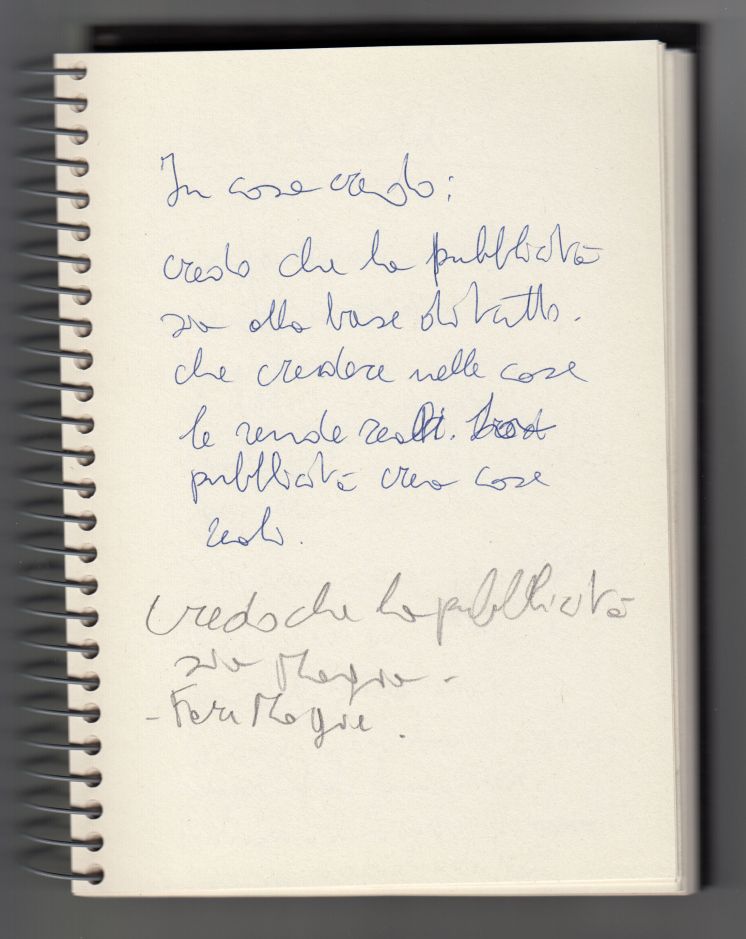 In cosa credo:
credo che la pubblicità
sia alla base di tutto.
che credere nelle cose
le rende reali.
pubblicità crea cose
reali.
Credo che la pubblicità
sia Magia -
- Fare Magie.